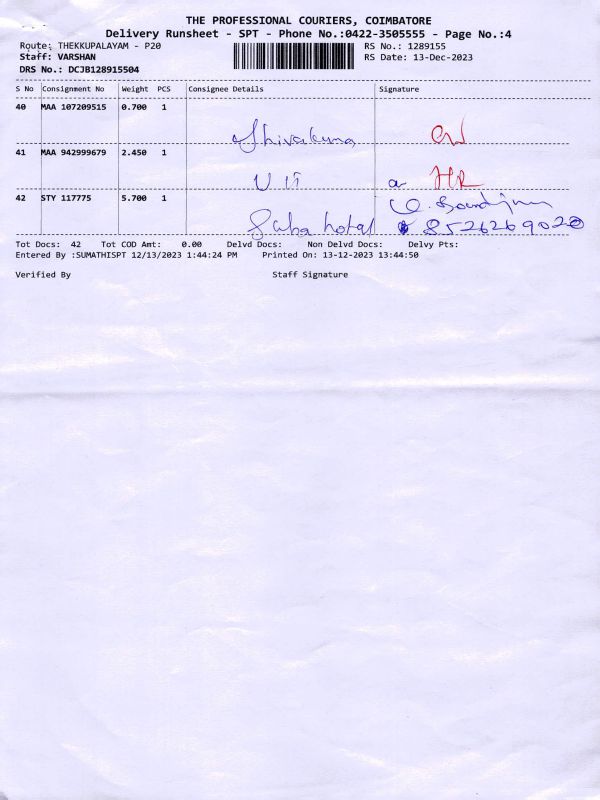 THE PROFESSIONAL COURIERS, COIMBATORE
Delivery Runsheet - SPT - Phone No.:0422-3505555 - Page No.:4
Route: THEKKUPALAYAM - P20 RS No.: 1289155
Staff: VARSHAN RS Date: 13-Dec-2023
DRS No.: DCJB128915504
S No Consignment No Weight PCS Consignee Details Signature
40 MAA 107209515 0.700 1
Shivakuma
41 MAA 942999679 2.450 1
HR
42 STY 117775 5.700 1
Saba hotal 8526269020
Tot Docs: 42 Tot COD Amt: 0.00 Delvd Docs: Non Delvd Docs: Delvy Pts:
Entered By :SUMATHISPT 12/13/2023 1:44:24 PM Printed On: 13-12-2023 13:44:50
Verified By Staff Signature